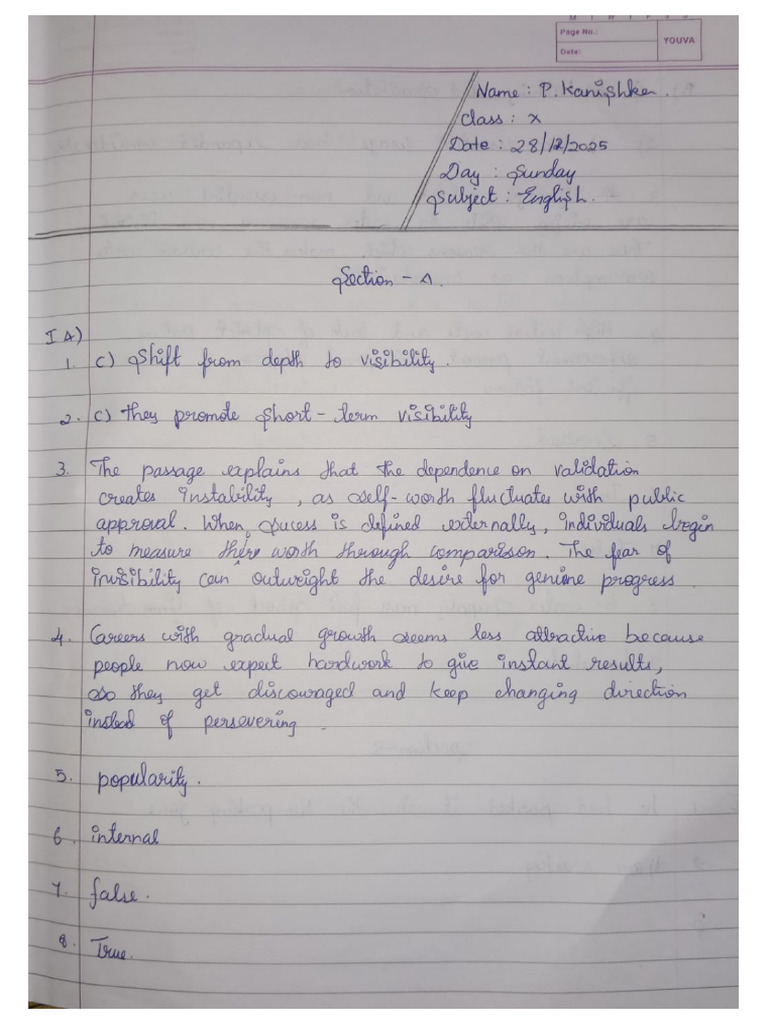 Page No.:
YOUVA
Date:
Name : P. Kanishka.
Class : X
Date : 28/12/2025
Day : Sunday
Subject : English.
Section - A.
I A)
1. c) Shift from depth to visibility.
2. c) they promote short-term visibility
3. The passage explains that the dependence on validation
creates instability, as self-worth fluctuates with public
approval. When sucess is defined externally, individuals begin
to measure their worth through comparison. The fear of
invisibility can outweight the desire for genuine progress.
4. Careers with gradual growth seems less attractive because
people now expect hardwork to give instant results,
so they get discouraged and keep changing direction
instead of persevering.
5. popularity.
6. internal
7. false.
8. True.